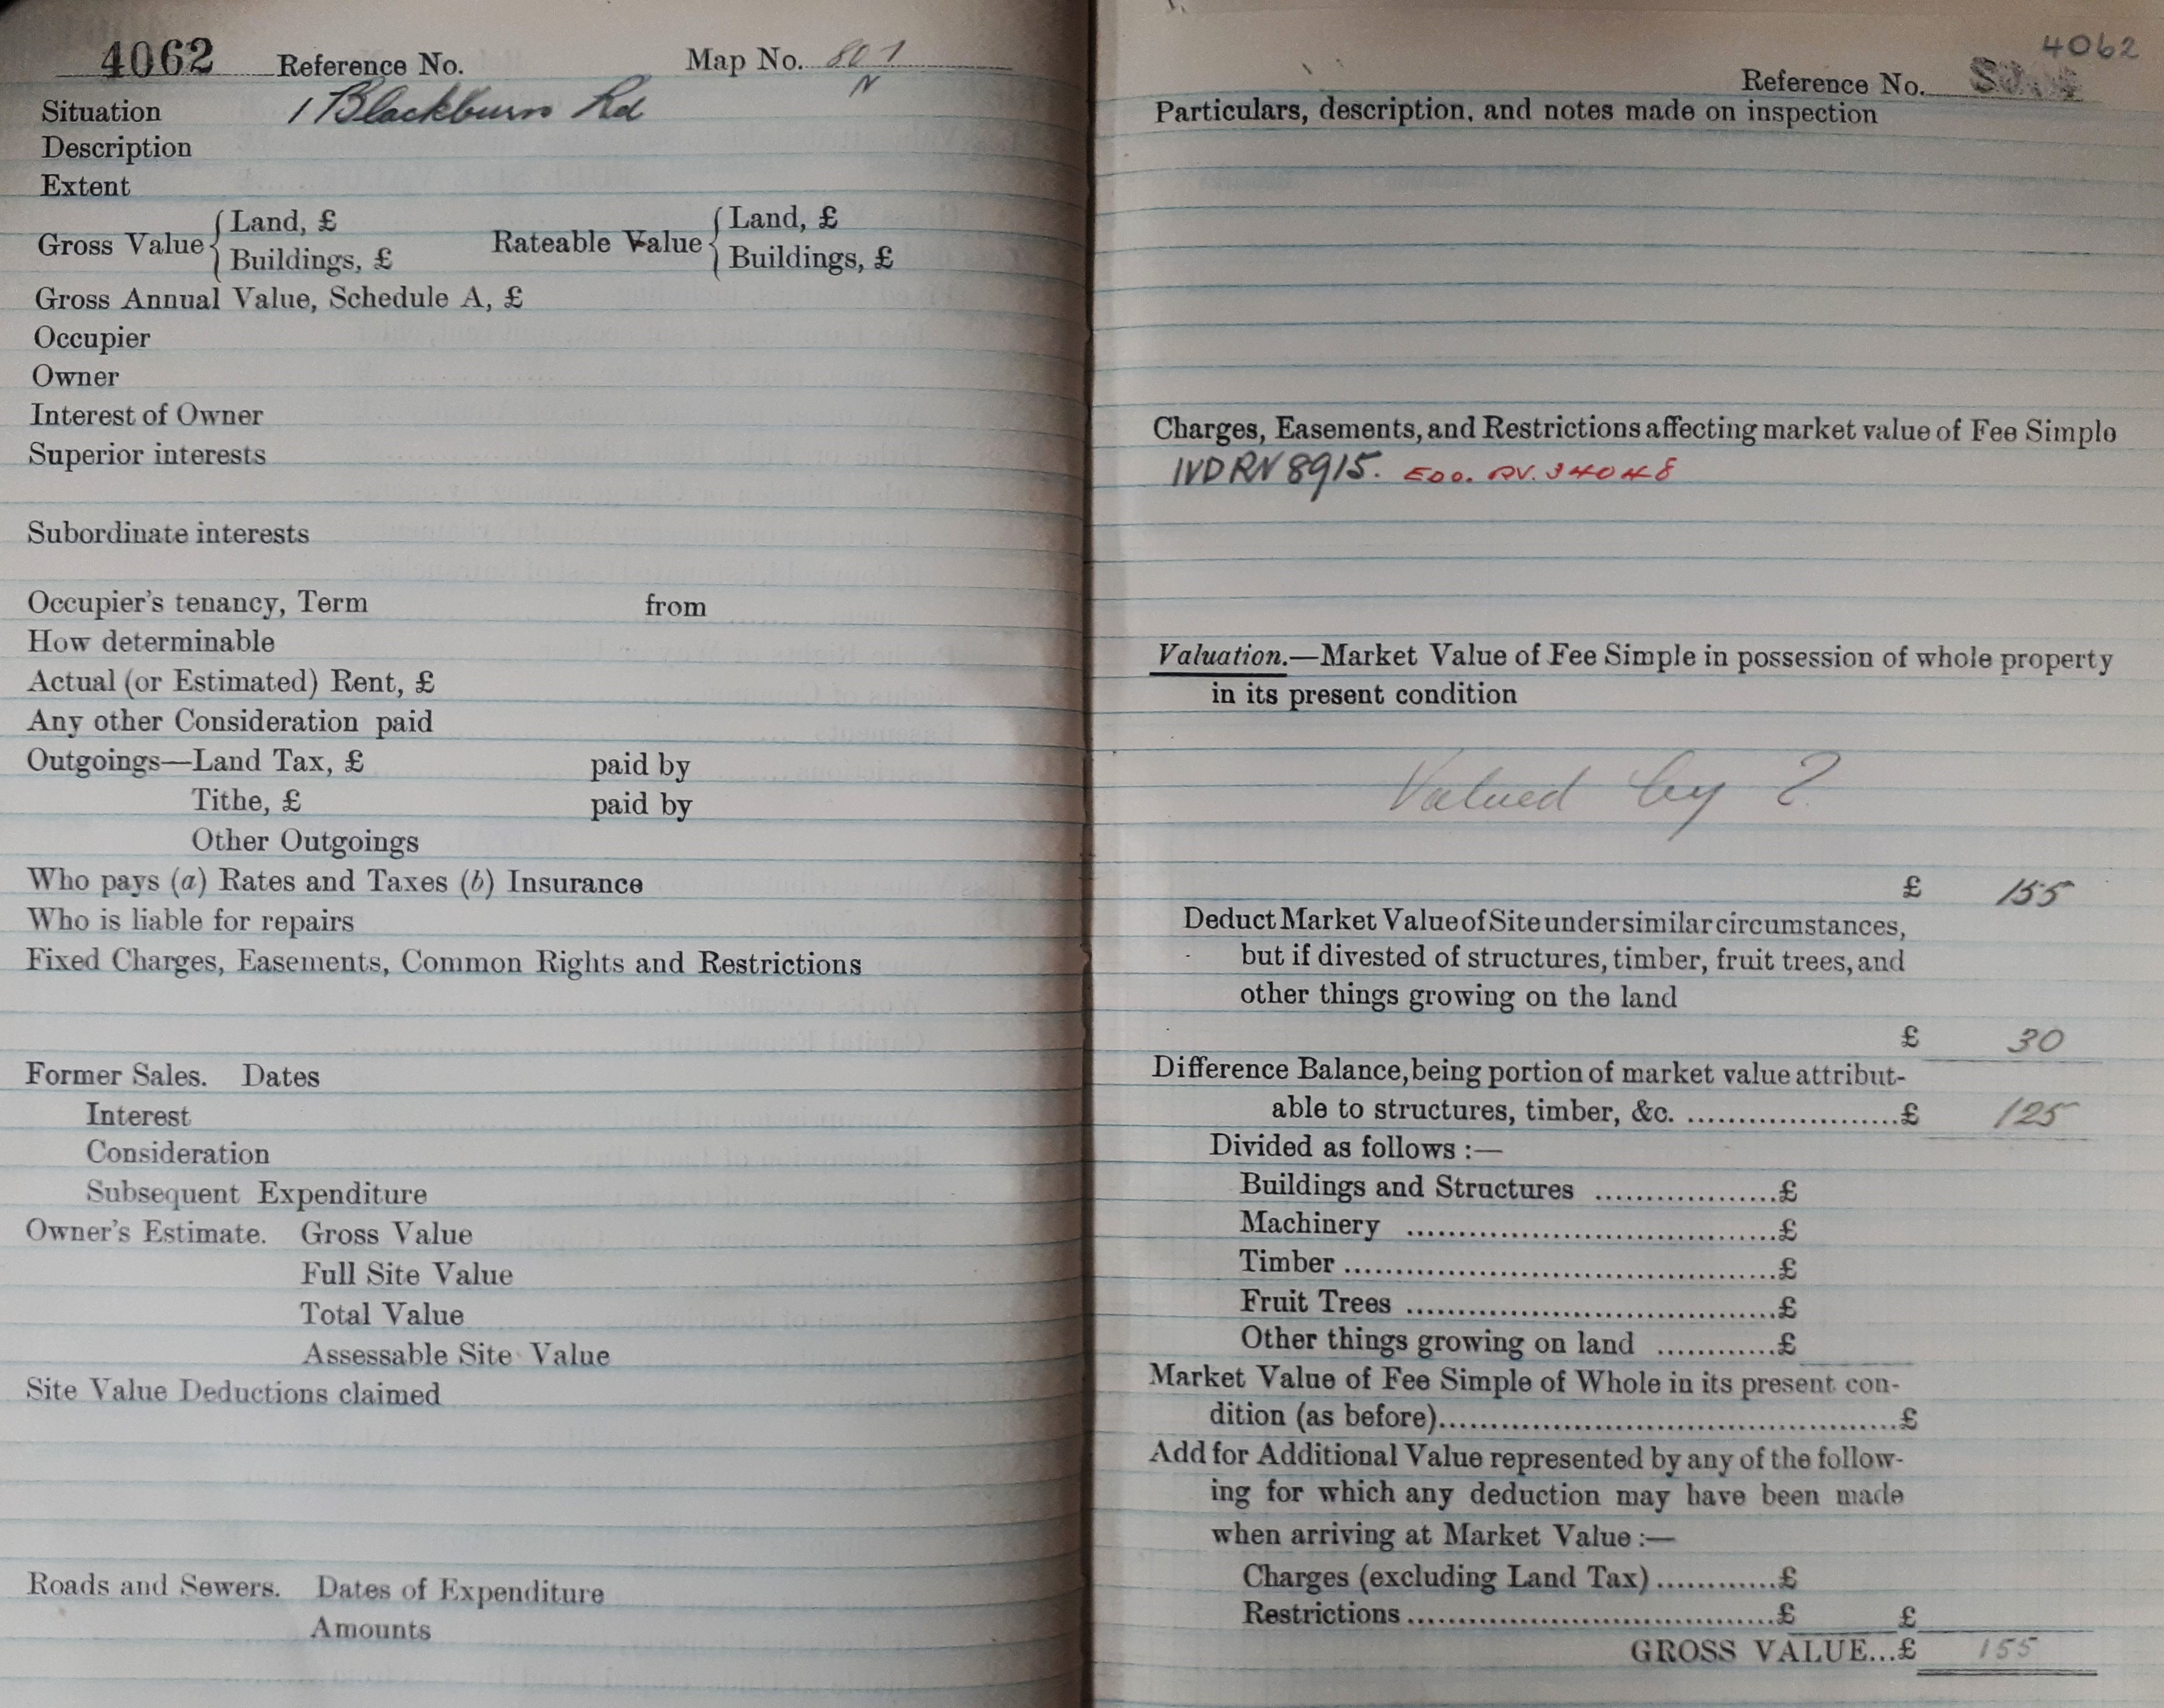 4062 Reference No. Map No. 807
N
Situation 1 Blackburn Rd
Description
Extent
Gross Value { Land, £ Rateable Value { Land, £
Buildings, £ Buildings, £
Gross Annual Value, Schedule A, £
Occupier
Owner
Interest of Owner
Superior interests
Subordinate interests
Occupier's tenancy, Term from
How determinable
Actual (or Estimated) Rent, £
Any other Consideration paid
Outgoings—Land Tax, £ paid by
Tithe, £ paid by
Other Outgoings
Who pays (a) Rates and Taxes (b) Insurance
Who is liable for repairs
Fixed Charges, Easements, Common Rights and Restrictions
Former Sales. Dates
Interest
Consideration
Subsequent Expenditure
Owner's Estimate. Gross Value
Full Site Value
Total Value
Assessable Site Value
Site Value Deductions claimed
Roads and Sewers. Dates of Expenditure
Amounts
4062
Reference No.
Particulars, description, and notes made on inspection
Charges, Easements, and Restrictions affecting market value of Fee Simple
IVD RN 8915. EDO. RV. 34048
Valuation.—Market Value of Fee Simple in possession of whole property
in its present condition
Valued by ?
£ 155
Deduct Market Value of Site under similar circumstances,
but if divested of structures, timber, fruit trees, and
other things growing on the land
£ 30
Difference Balance, being portion of market value attribut-
able to structures, timber, &c. .....................£ 125
Divided as follows :—
Buildings and Structures ..................£
Machinery .....................................£
Timber ...........................................£
Fruit Trees .....................................£
Other things growing on land ............£
Market Value of Fee Simple of Whole in its present con-
dition (as before)..............................................£
Add for Additional Value represented by any of the follow-
ing for which any deduction may have been made
when arriving at Market Value :—
Charges (excluding Land Tax) ............£
Restrictions .....................................£ £
GROSS VALUE...£ 155